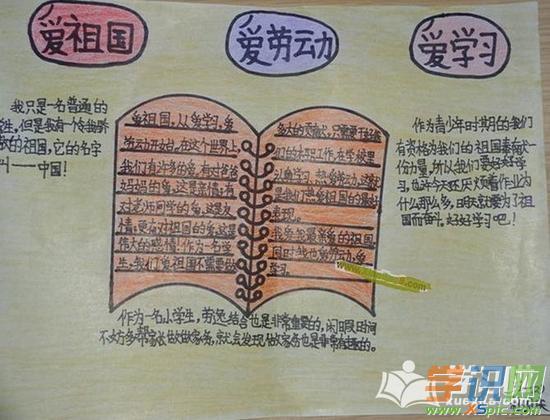 爱祖国
爱劳动
爱学习
我只是一名普通的
学生，但是我有一个令我骄
傲的祖国，它的名字
叫——中国！
爱祖国，从爱学习，爱
劳动开始，在这个世界上
我们有许多的爱，有对爸爸
妈妈的爱，这是亲情；有
对老师同学的爱，这是友
情；更有对祖国的爱，这是
伟大的感情！作为一名学
生，我们爱祖国不需要做
多大的贡献，只需要
们的本职工作，在学校里
认真学习，热爱劳动，这就
是我们爱祖国的最好
表现。
我爱我最亲爱的祖国，
同时我也爱劳动、爱
学习。
作为青少年时期的我们
有资格为我们的祖国奉献一
份力量，所以我们要好好学
习，也许今天还厌烦着作业为
什么那么多，明天就要为了祖
国而奋斗。好好学习吧！
作为一名小学生，劳逸结合也是非常重要的，闲暇时间
不妨多帮家长做做家务，就会发现做家务也是非常有趣的。
学识网
www.xspic.com